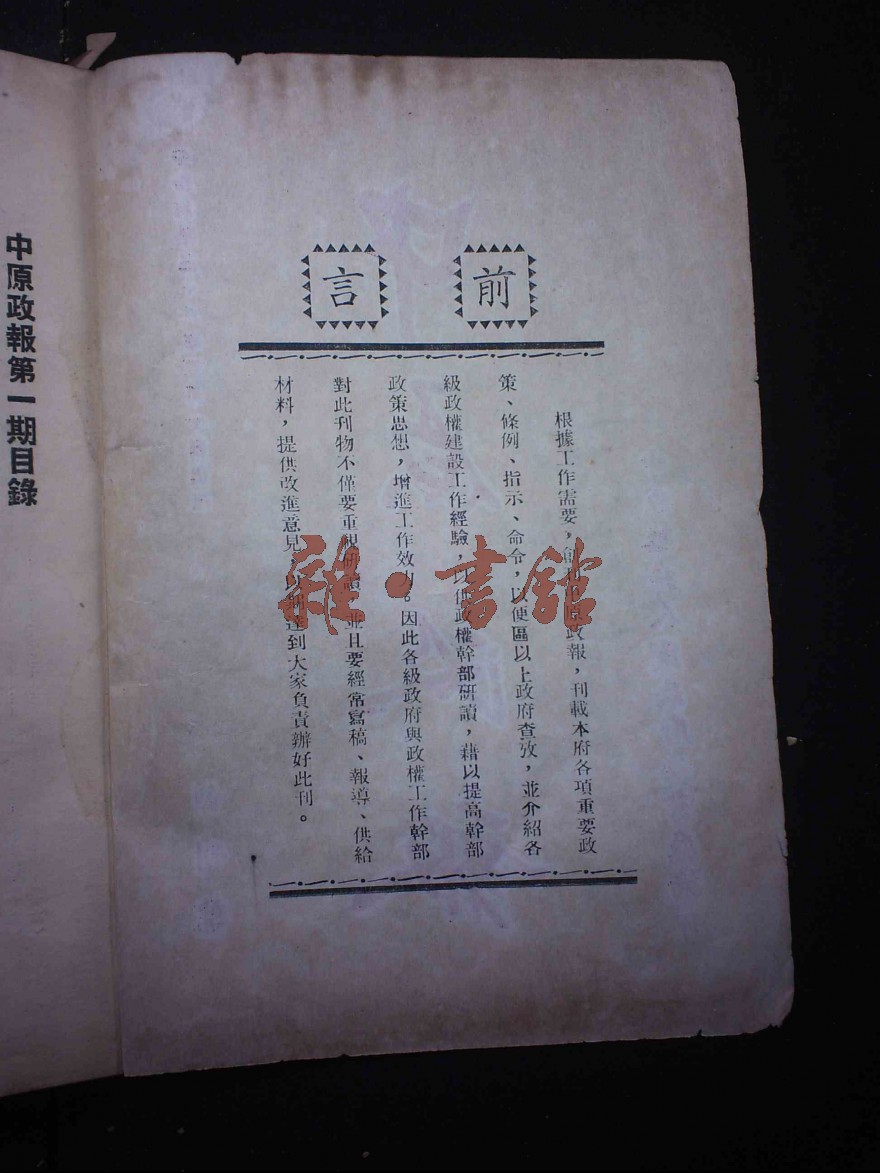 前言
根據工作需要，創刊中原政報，刊載本府各項重要政
策、條例、指示、命令，以便區以上政府查攷，並介紹各
級政權建設工作經驗，以供政權幹部研讀，藉以提高幹部
政策思想，增進工作效力。因此各級政府與政權工作幹部
對此刊物不僅要重視研讀，並且要經常寫稿、報導、供給
材料，提供改進意見，以期達到大家負責辦好此刊。
中原政報第一期目錄
雜·書館